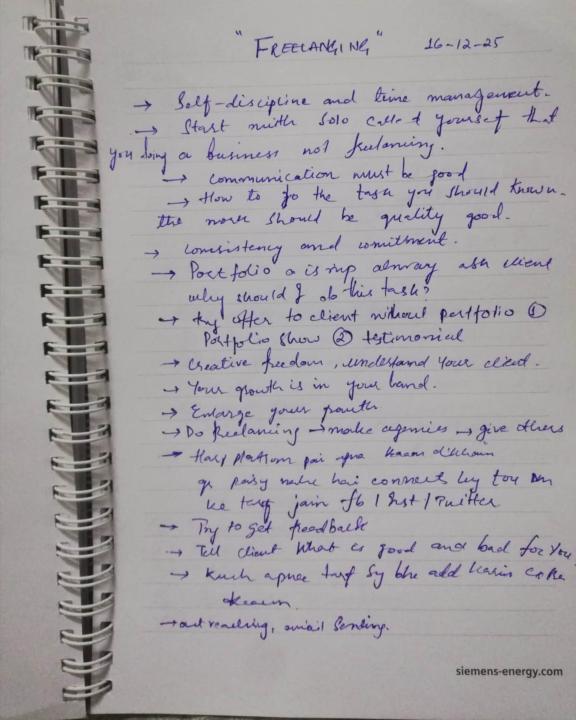 "FREELANCING" 16-12-25
→ Self-discipline and time management.
→ Start with solo call yourself that
you doing a business not freelancing.
→ Communication must be good
→ How to do the task you should known.
the work should be quality good.
→ Consistency and comitment.
→ Portfolio is imp alway ask client
why should I do this task?
→ try offer to client without portfolio ①
Portfolio show ② testimonial
→ Creative freedom, understand your client.
→ Your growth is in your hand.
→ Enlarge your growth
→ Do freelancing → make agencies → give others
→ Harj platform par apna kaam dikhain
gr paisy nahe hai connects ky tou un
ke tarf jain fb / Inst / Twitter
→ Try to get feedback
→ Tell client what is good and bad for you
→ Kuch apnee tarf sy bhe add karin
kaam.
→ out reaching, email sending.
siemens-energy.com